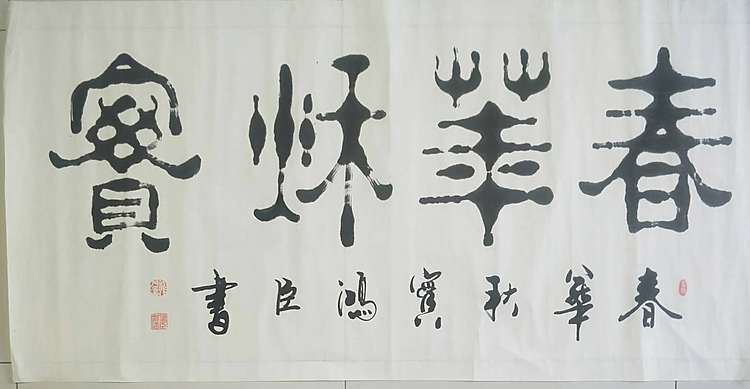 春華秌實
春華秋實鴻臣書